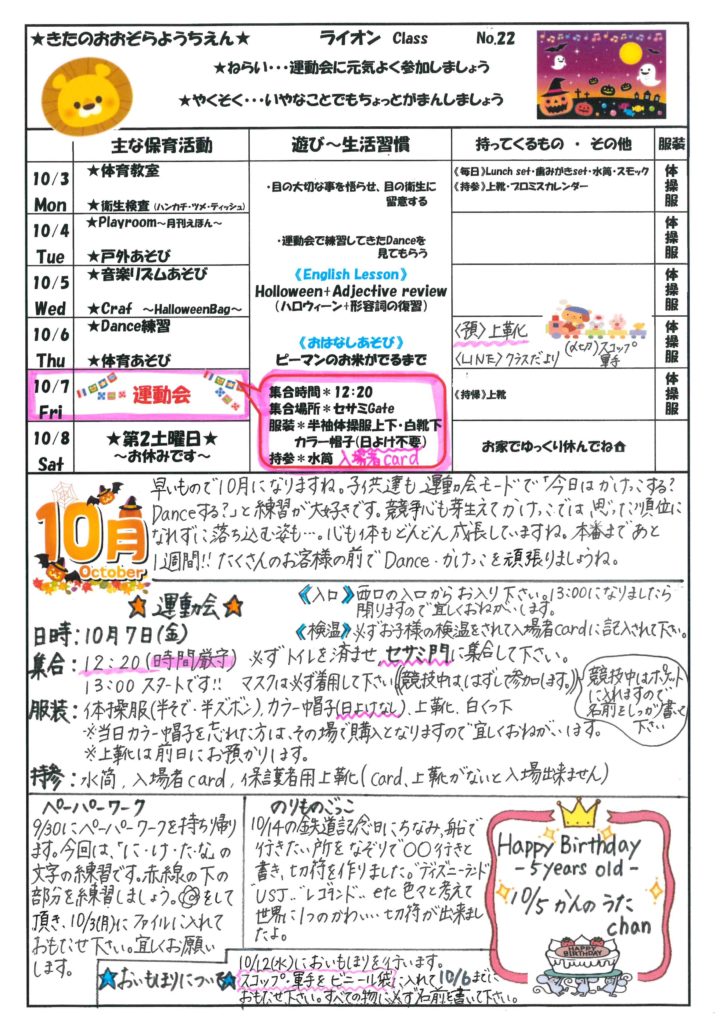 ★きたのおおぞらようちえん★ ライオン Class No.22
★ねらい・・・運動会に元気よく参加しましょう
★やくそく・・・いやなことでもちょっとがまんしましょう
主な保育活動 遊び～生活習慣 持ってくるもの ・ その他 服装
10/3 Mon
★体育教室
★衛生検査（ハンカチ・ツメ・ティッシュ）
・目の大切な事を悟らせ、目の衛生に
留意する
《毎日》Lunch set・歯みがきset・水筒・スモック
《持参》上靴・プロミスカレンダー
体操服
10/4 Tue
★Playroom～月刊えほん～
★戸外あそび
・運動会で練習してきたDanceを
見てもらう
体操服
10/5 Wed
★音楽リズムあそび
★Craf ～HalloweenBag～
《English Lesson》
Holloween+Adjective review
（ハロウィーン+形容詞の復習）
体操服
10/6 Thu
★Dance練習
★体育あそび
《おはなしあそび》
ピーマンのお米がでるまで
〈預〉上靴
〈LINE〉クラスだより
スコップ
軍手
体操服
10/7 Fri
運動会
集合時間＊12:20
集合場所＊セサミGate
服装＊半袖体操服上下・白靴下
カラー帽子（日よけ不要）
持参＊水筒 入場者card
《持帰》上靴
体操服
10/8 Sat
★第2土曜日★
～お休みです～
お家でゆっくり休んでね
10月
October
早いもので10月になりますね。子供達も運動会モードで「今日はかけっこする？
Danceする？」と練習が大好きです。競争心も芽生えてかけっこでは思った順位に
なれずに落ち込む姿も…。心も体もどんどん成長していますね。本番まであと
1週間!! たくさんのお客様の前でDance・かけっこを頑張りましょうね。
★運動会★
《入口》西口の入口からお入り下さい。13:00になりましたら
開けますので宜しくおねがいします。
日時:10月7日(金)
《検温》必ずお子様の検温をされて入場者cardに記入されて下さい。
集合:12:20(時間厳守) 必ずトイレを済ませ、セサミ門に集合して下さい。
13:00 スタートです!! マスクは必ず着用して下さい(競技中は、はずして参加します。)
競技中はポケット
に入れますので
名前をしっかり書いて
下さい
服装:体操服(半そで・半ズボン),カラー帽子(日よけなし)、上靴、白くつ下
※当日カラー帽子を忘れた方は、その場で購入となりますので宜しくおねがいします。
※上靴は前日にお預かりします。
持参:水筒,入場者card,保護者用上靴(card、上靴がないと入場出来ません)
ペーパーワーク
9/30にペーパーワークを持ち帰り
ます。今回は、「に・け・た・な」の
文字の練習です。赤線の下の
部分を練習しましょう。をして
頂き、10/3(月)にファイルに入れて
おもたせ下さい。宜しくお願い
します。
のりものごっこ
10/14の鉄道記念日にちなみ、船で
行きたい所をなぞりで〇〇行きと
書き、切符を作りました。"ディズニーランド"
"USJ"、"レゴランド"、etc 色々と考えて
世界に1つのかわいい切符が出来まし
たよ。
Happy Birthday
- 5 years old -
10/5 かんの うた
chan
HAPPY BIRTHDAY
★おいもほりについて★
10/12(水)においもほりを行います。
スコップ・軍手をビニール袋に入れて10/6までに
おもたせ下さい。すべての物に必ず名前を書いて下さい。